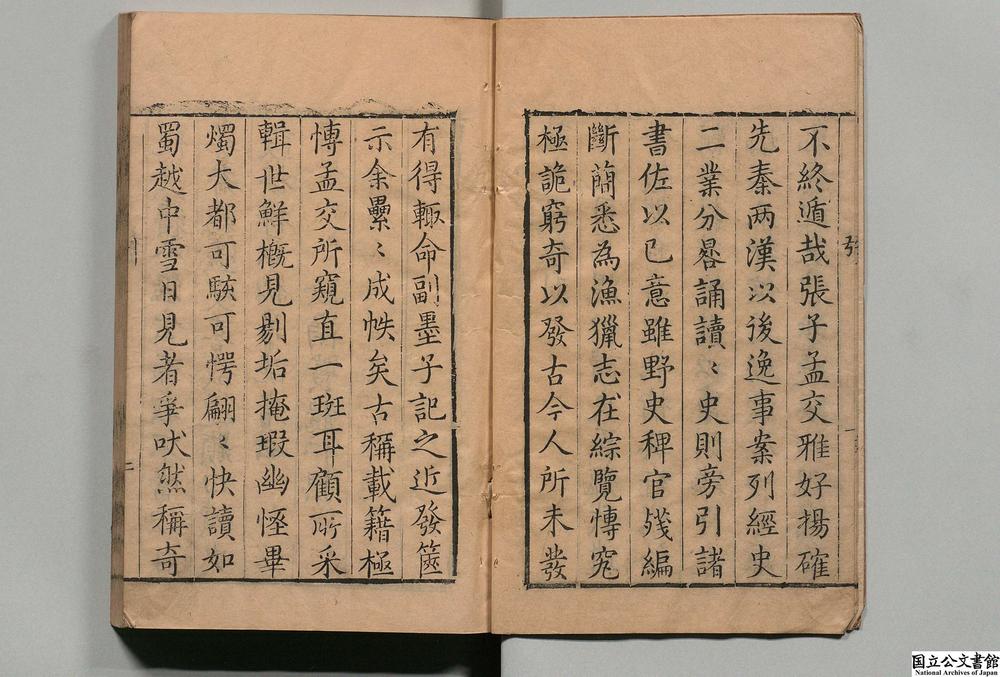 不終遁哉張子孟交雅好揚確
先秦两漢以後逸事案列經史
二業分晷誦讀〻史則旁引諸
書佐以己意雖野史稗官殘編
斷簡悉為漁獵志在綜覽博究
極詭窮奇以發古今人所未發
有得輙命副墨子記之近發篋
示余纍〻成帙矣古稱載籍極
博孟交所窺直一斑耳顧所采
輯世鮮概見剔垢掩瑕幽怪畢
燭大都可駭可愕翩〻快讀如
蜀越中雪日見者爭吠然稱奇
国立公文書館
National Archives of Japan